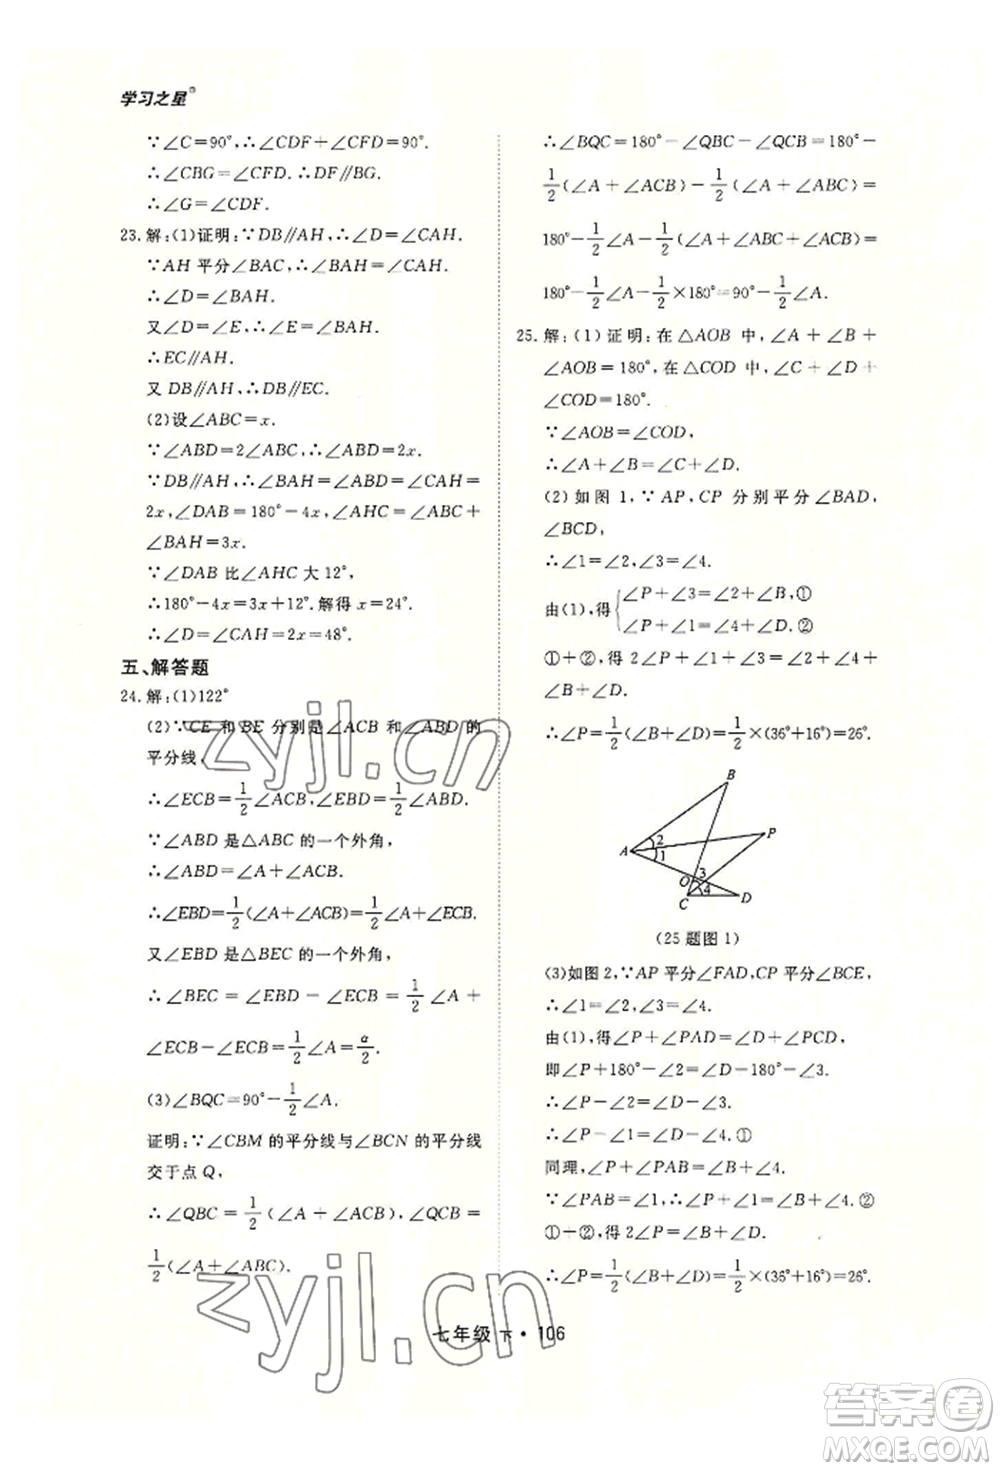 学习之星®
∵∠C=90°,∴∠CDF+∠CFD=90°.
∴∠CBG=∠CFD.∴DF∥BG.
∴∠G=∠CDF.
23.解:(1)证明:∵DB∥AH,∴∠D=∠CAH.
∵AH平分∠BAC,∴∠BAH=∠CAH.
∴∠D=∠BAH.
又∠D=∠E,∴∠E=∠BAH.
∴EC∥AH.
又DB∥AH,∴DB∥EC.
(2)设∠ABC=x.
∵∠ABD=2∠ABC,∴∠ABD=2x.
∵DB∥AH,∴∠BAH=∠ABD=∠CAH=
2x,∠DAB=180°-4x,∠AHC=∠ABC+
∠BAH=3x.
∵∠DAB比∠AHC大12°,
∴180°-4x=3x+12°.解得x=24°.
∴∠D=∠CAH=2x=48°.
五、解答题
24.解:(1)122°
(2)∵CE和BE分别是∠ACB和∠ABD的
平分线,
∴∠ECB=1/2∠ACB,∠EBD=1/2∠ABD.
∵∠ABD是△ABC的一个外角,
∴∠ABD=∠A+∠ACB.
∴∠EBD=1/2(∠A+∠ACB)=1/2∠A+∠ECB.
又∠EBD是△BEC的一个外角,
∴∠BEC=∠EBD-∠ECB=1/2∠A+
∠ECB-∠ECB=1/2∠A=α/2.
(3)∠BQC=90°-1/2∠A.
证明:∵∠CBM的平分线与∠BCN的平分线
交于点Q,
∴∠QBC=1/2(∠A+∠ACB),∠QCB=
1/2(∠A+∠ABC).
∴∠BQC=180°-∠QBC-∠QCB=180°-
1/2(∠A+∠ACB)-1/2(∠A+∠ABC)=
180°-1/2∠A-1/2(∠A+∠ABC+∠ACB)=
180°-1/2∠A-1/2×180°=90°-1/2∠A.
25.解:(1)证明:在△AOB中,∠A+∠B+
∠AOB=180°,在△COD中,∠C+∠D+
∠COD=180°.
∵∠AOB=∠COD,
∴∠A+∠B=∠C+∠D.
(2)如图1,∵AP,CP分别平分∠BAD,
∠BCD,
∴∠1=∠2,∠3=∠4.
由(1),得{∠P+∠3=∠2+∠B,①
∠P+∠4=∠1+∠D.②
①+②,得2∠P+∠3+∠4=∠1+∠2+
∠B+∠D.
∴∠P=1/2(∠B+∠D)=1/2×(36°+16°)=26°.
B
2
P
A
1
O
3
4
C
D
(25题图1)
(3)如图2,∵AP平分∠FAD,CP平分∠BCE,
∴∠1=∠2,∠3=∠4.
由(1),得∠P+∠PAD=∠D+∠PCD,
即∠P+180°-∠2=∠D+180°-∠3.
∴∠P-∠2=∠D-∠3.
∴∠P-∠1=∠D-∠4.①
同理,∠P+∠PAB=∠B+∠4.
∵∠PAB=∠1,∴∠P+∠1=∠B+∠4.②
①+②,得2∠P=∠B+∠D.
∴∠P=1/2(∠B+∠D)=1/2×(36°+16°)=26°.
七年级 下·106
zyjl.cn
zyjl.cn
答案圈
MXQE.COM